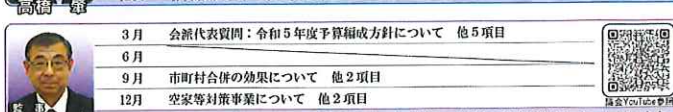 高橋 肇
3月 会派代表質問：令和5年度予算編成方針について 他5項目
6月
9月 市町村合併の効果について 他2項目
12月 空家等対策事業について 他2項目
監事
議会YouTube参照